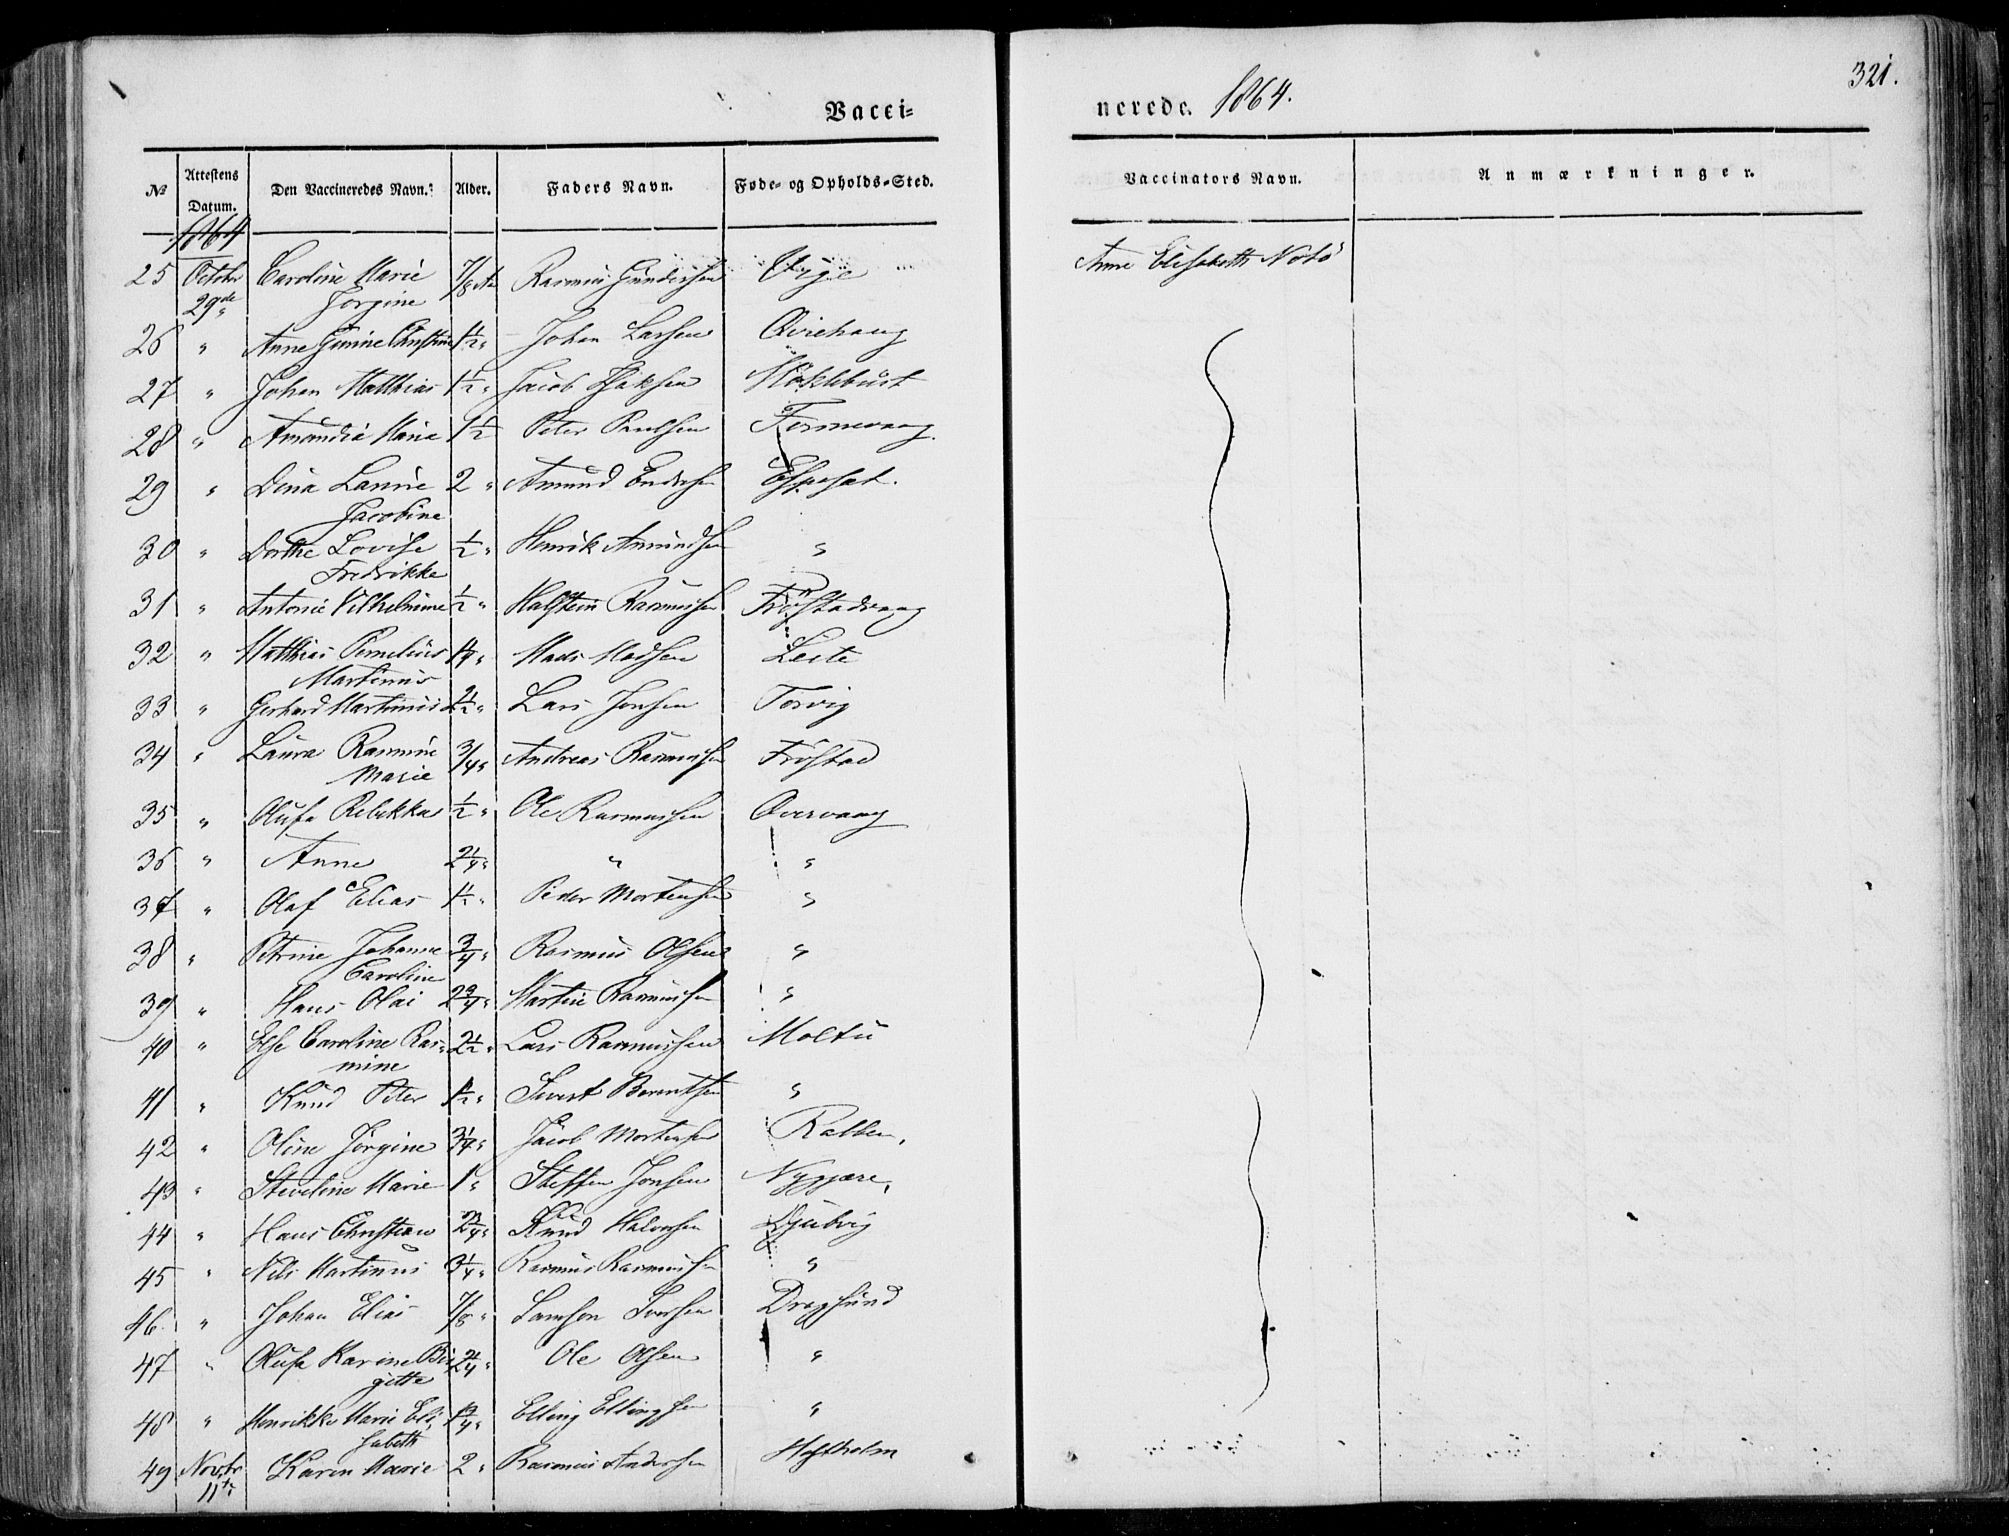 Vacci=
nerede. 1864.
321.
No Attestens Datum. Den Vaccineredes Navn. Alder. Faders Navn. Føde- og Opholds-Sted. Vaccinators Navn. Anmærkninger.
1864
25 Octobr Caroline Marie 7/8 Rasmus Gundersen Anne Elisabeth Notø
29de Jørgine
26 " Anne Gurine Christine 1 1/2 " Johan Larsen Qviehaug
27 " Johan Matthias 1 1/2 " Jacob
28 " Amandia Marie 1 1/2 Peter Paulsen
29 " Dina Laurine 2 " Amund Endresen Espeset.
Jacobine
30 " Dorthe Lovise 1/2 " Henrik Amundsen "
Fredrikke
31 " Antonie Vilhelmine 1/2 " Halstein Rasmussen Frøstadvaag
32 " Matthias Cornelius 1/4 " Mads Madsen Leite
Martinus
33 " Gerhard Martinus 2 1/2 " Lars Jonsen Torvig
34 " Laura Rasmine 3/4 " Andreas Rasmussen Frøstad
Marie
35 " Olufa Rebekka 1/2 " Ole Rasmussen Qvervaag
36 " Anne 2 1/4 " " "
37 " Olaf Elias 1 1/2 " Peder Mortensen "
38 " Petrine Johanne 3/4 " Rasmus Olsen "
Caroline
39 " Hans Olai 2 3/4 " Martin Rasmussen "
40 " Else Caroline Ras= 2 1/2 " Lars Rasmussen Moltu
mine
41 " Knud Peter 1 1/2 " Sivert Berentsen "
42 " Oline Jørgine 3 1/4 " Jacob Mortensen Rabben,
43 " Steveline Marie 1 " Steffen Jonsen Nygjære,
44 " Hans Christian 2 3/4 " Knud Halvorsen Djubvig
45 " Nils Martinus 3 1/4 " Rasmus Rasmussen "
46. " Johan Elias 7/8 " Samson Iversen Dragsund
47 " Olufa Karine Bir 2 1/4 " Ole Olsen "
gitte
48 " Henrikke Marie Eli 1 3/4 " Elling Ellingsen "
sabeth
49 Novbr Karen Marie 2 " Rasmus Andersen
11te